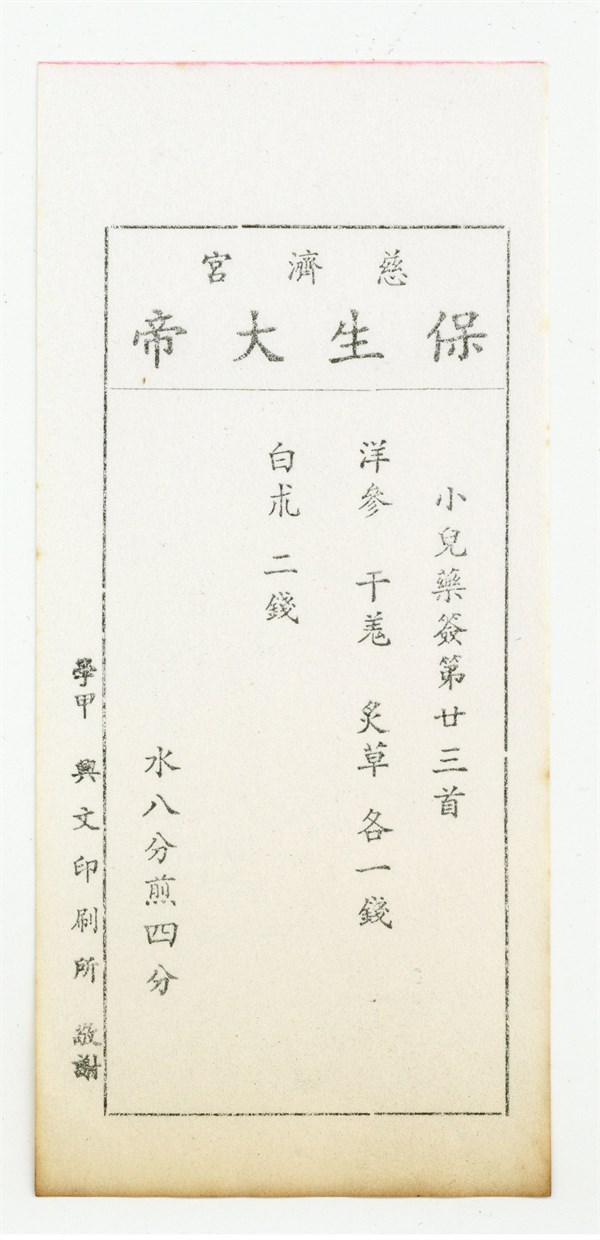 慈濟宮
保生大帝
小兒藥簽第廿三首
洋參 干羗 炙草 各一錢
白朮 二錢
水八分煎四分
學甲 興文印刷所 敬謝